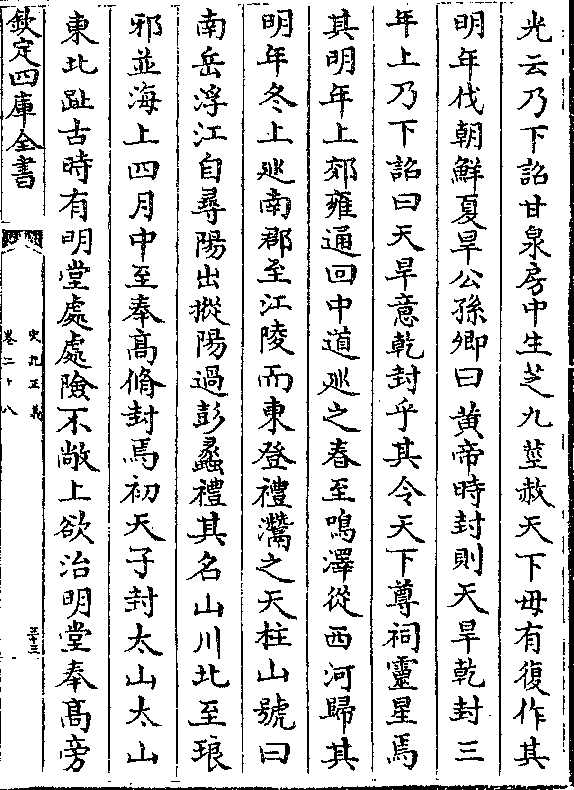 光云乃下詔甘泉房中生芝九莖赦天下毋有復作其
明年伐朝鮮夏旱公孫卿曰黄帝時封則天旱乾封三
年上乃下詔曰天旱意乾封乎其令天下尊祠靈星焉
其明年上郊雍通回中道廵之春至鳴澤從西河歸其
明年冬上廵南郡至江陵而東登禮灊之天柱山號曰
南岳浮江自尋陽出樅陽過彭蠡禮其名山川北至琅
邪並海上四月中至奉髙脩封焉初天子封太山太山
東北趾古時有明堂處處險不敞上欲治明堂奉髙旁
欽定四庫全書
史記正義
卷二十八
三十三